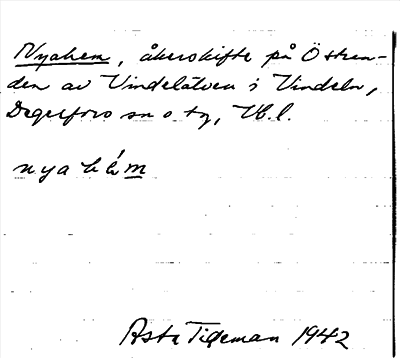 Nyahem, åkerskifte på Östran-
den av Vindelälven i Vindeln,
Degerfors sn o ty, Vb.l.
nyahém
Asta Tideman 1942